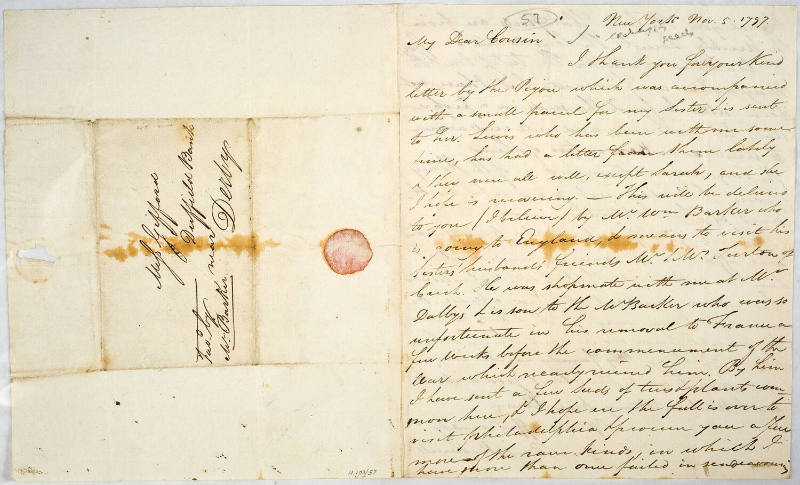 Miss Gifford
Duffield Bank
near Derby
Fav.d by
Mr. Barker
H.193/57
57
New York Nov. 5. 1797.
My Dear Cousin
I thank you for your kind
letter by the Pigou which was accompanied
with a small parcel for my Sister & is sent
to her. Lewis who has been with me some
time, has had a letter from them lately
& they were all well, except Sarah, and she
I hope is recovering. — This will be delivered
to you (I believe) by Mr. Wm Barker who
is going to England, & means to visit his
Sisters husbands friends Mr. & Mrs. Turton of
Crich. He was shopmate with me at Mr.
Dalby's & is son to the Mr Barker who was so
unfortunate in his removal to France a
few weeks before the commencement of the
War which nearly ruined them. By him
I have sent a few seeds of trees & plants com-
mon here, & I hope ere the fall is over to
visit Philadelphia & procure you a few
more of the rarer kinds, in which I
have more than once failed in endeavouring